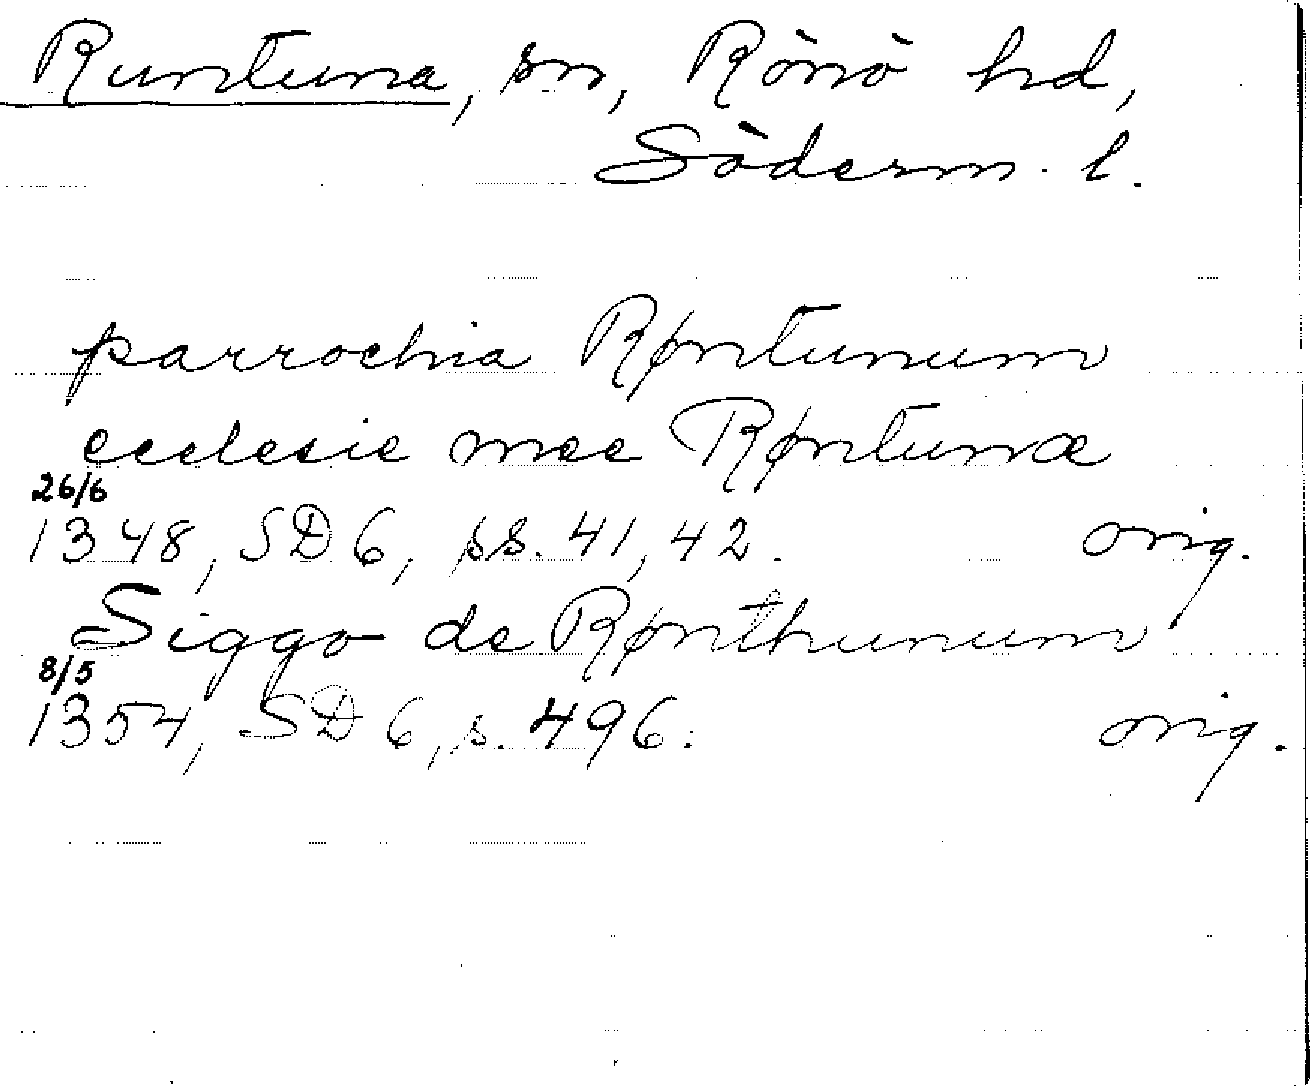 Runtuna, sn, Rönö hd,
Söderm. l.
parrochia Røntunum
ecclesie mee Røntunæ
26/6
1348, SD 6, ss. 41, 42. orig.
Siggo de Rønthunum
8/5
1354, SD 6, s. 496. orig.